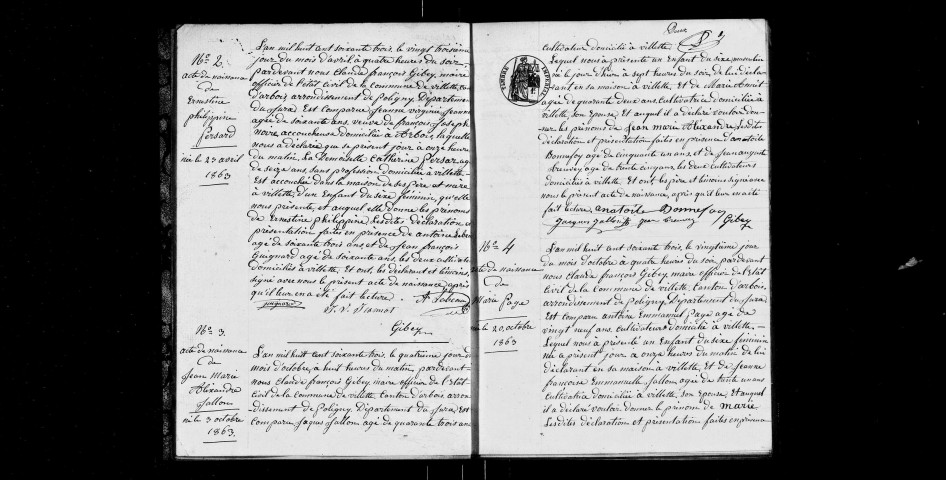 N.º 2.
acte de naissance
de
Ernestine
philippine
Persard
née le 23 avril
1863
L'an mil huit cent soixante trois, le vingt troisième
jour du mois d'avril, à quatre heures du soir,
pardevant nous Claude François Gibey, maire
officier de l'état civil de la commune de villette, canton
d'arbois arrondissement de Poligny, Département
du Jura. Est comparue Jeanne Virginie
agée de soixante ans, veuve de françois Joseph
accoucheuse domiciliée à Arbois, laquelle
nous a déclaré que ce present jour à onze heures
du matin, la Demoiselle Catherine Persard, agée
de seize ans, sans profession domiciliée à villette
Est accouchée dans la maison de ses père et mère
à villette, d'un Enfant du sexe féminin, qu'elle
nous présente, et auquel elle donne les prénoms
de Ernestine philippine. Lesdites déclaration et
présentation faites en présence de antoine
agé de soixante trois ans, et de Jean françois
Guignard agé de soixante ans, les deux cultivateurs
domiciliés à villette. Et ont, les déclarant et témoins
signé avec nous le présent acte de naissance, après
qu'il leur en a été fait lecture.
Gibey
N.º 3.
acte de naissance
de
Jean Marie
Alexandre
Jallon
né le 3 octobre
1863.
L'an mil huit cent soixante trois, le quatrième jour du
mois d'octobre, à huit heures du matin, pardevant
nous Claude françois Gibey, maire officier de l'état
civil de la commune de villette canton d'arbois arron-
dissement de Poligny, Département du Jura. Est
comparu Jaques Jallon, agé de quarante trois ans
Deux
cultivateur domicilié à villette.
Lequel nous a présenté un Enfant du sexe masculin
né le jour d'hier à sept heures du soir, de lui décla-
rant en sa maison à villette, et de Marie
agée de quarante deux ans, cultivatrice domiciliée à
villette, son épouse, Et auquel il a déclaré vouloir don-
ner les prénoms de Jean marie Alexandre. Lesdites
déclaration et présentation faites en présence d'anatoile
Bonnefoy agé de cinquante un ans, et de Jean auguste
agé de trente cinq ans les deux cultivateurs
domiciliés à villette. Et ont, les père et témoins signé avec
nous le présent acte de naissance, après qu'il leur en a été
fait lecture. anatoile Bonnefoy
Gibey
N.º 4
acte de naissance
de
Marie Page
née le 20 octobre
1863
L'an mil huit cent soixante trois, le vingtième jour
du mois d'octobre à quatre heures du soir, pardevant
nous Claude françois Gibey, maire officier de l'état
civil de la commune de villette, canton d'arbois,
arrondissement de Poligny, Département du Jura.
Est comparu antoine Emmanuel Page agé de
vingt neuf ans, cultivateur domicilié à villette.
Lequel nous a présenté un Enfant du sexe féminin
né ce présent jour à onze heures du matin de lui
déclarant en sa maison à villette, et de Jeanne
françoise Emmanuelle Jallon agée de trente un ans
domiciliée à villette, son épouse, Et auquel
il a déclaré vouloir donner le prénom de marie.
Lesdites déclaration et présentation faites en présence